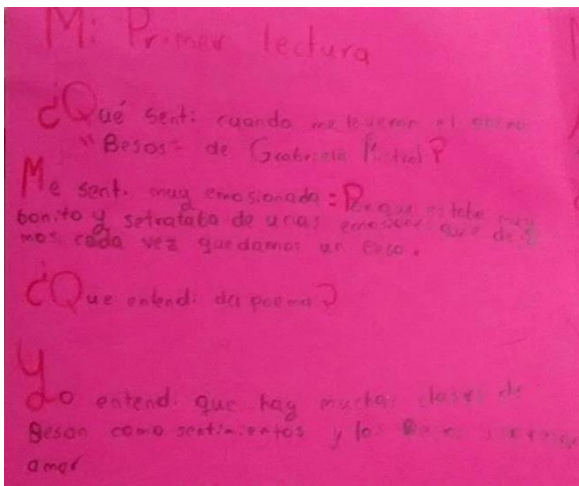 Mi Primer lectura
¿Qué senti cuando me leyeron el poema
"Besos" de Grabriela Mistral?
Me senti muy emosionada: Porque estaba muy
bonito y setrataba de unas emosiones que de
mos cada vez que damos un beso.
¿Que entendi del poema?
Yo entendi que hay muchas clases de
Besan como sentimientos y los
amor